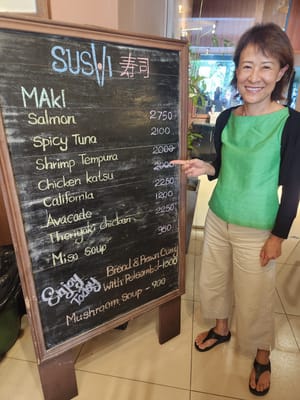 SUSHI 寿司
MAKI
Salmon 2750
Spicy Tuna 2100
Shrimp Tempura 2000
Chicken katsu
California 2250
Avacado 1800
Theriyaki chicken 2250
Miso soup 950
Enjoy Today
Bread & Prawn Curry
With Polsambol - 1800
Mushroom soup - 900